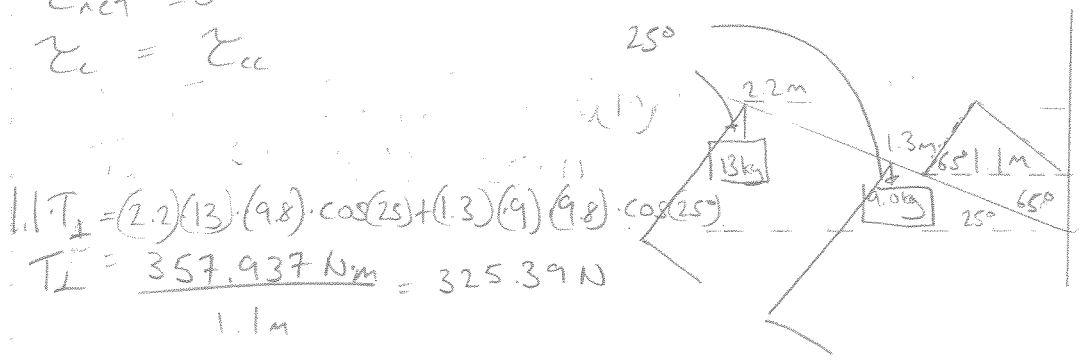 τnet = 0
τc = τcc
1.1·T⊥ = (2.2)(13)·(9.8)·cos(25)+(1.3)(9)(9.8)·cos(25°)
T⊥ = 357.937 N·m / 1.1m = 325.39 N
25°
2.2m
13kg
1.3m
65°
1.1m
9.0kg
25°
65°